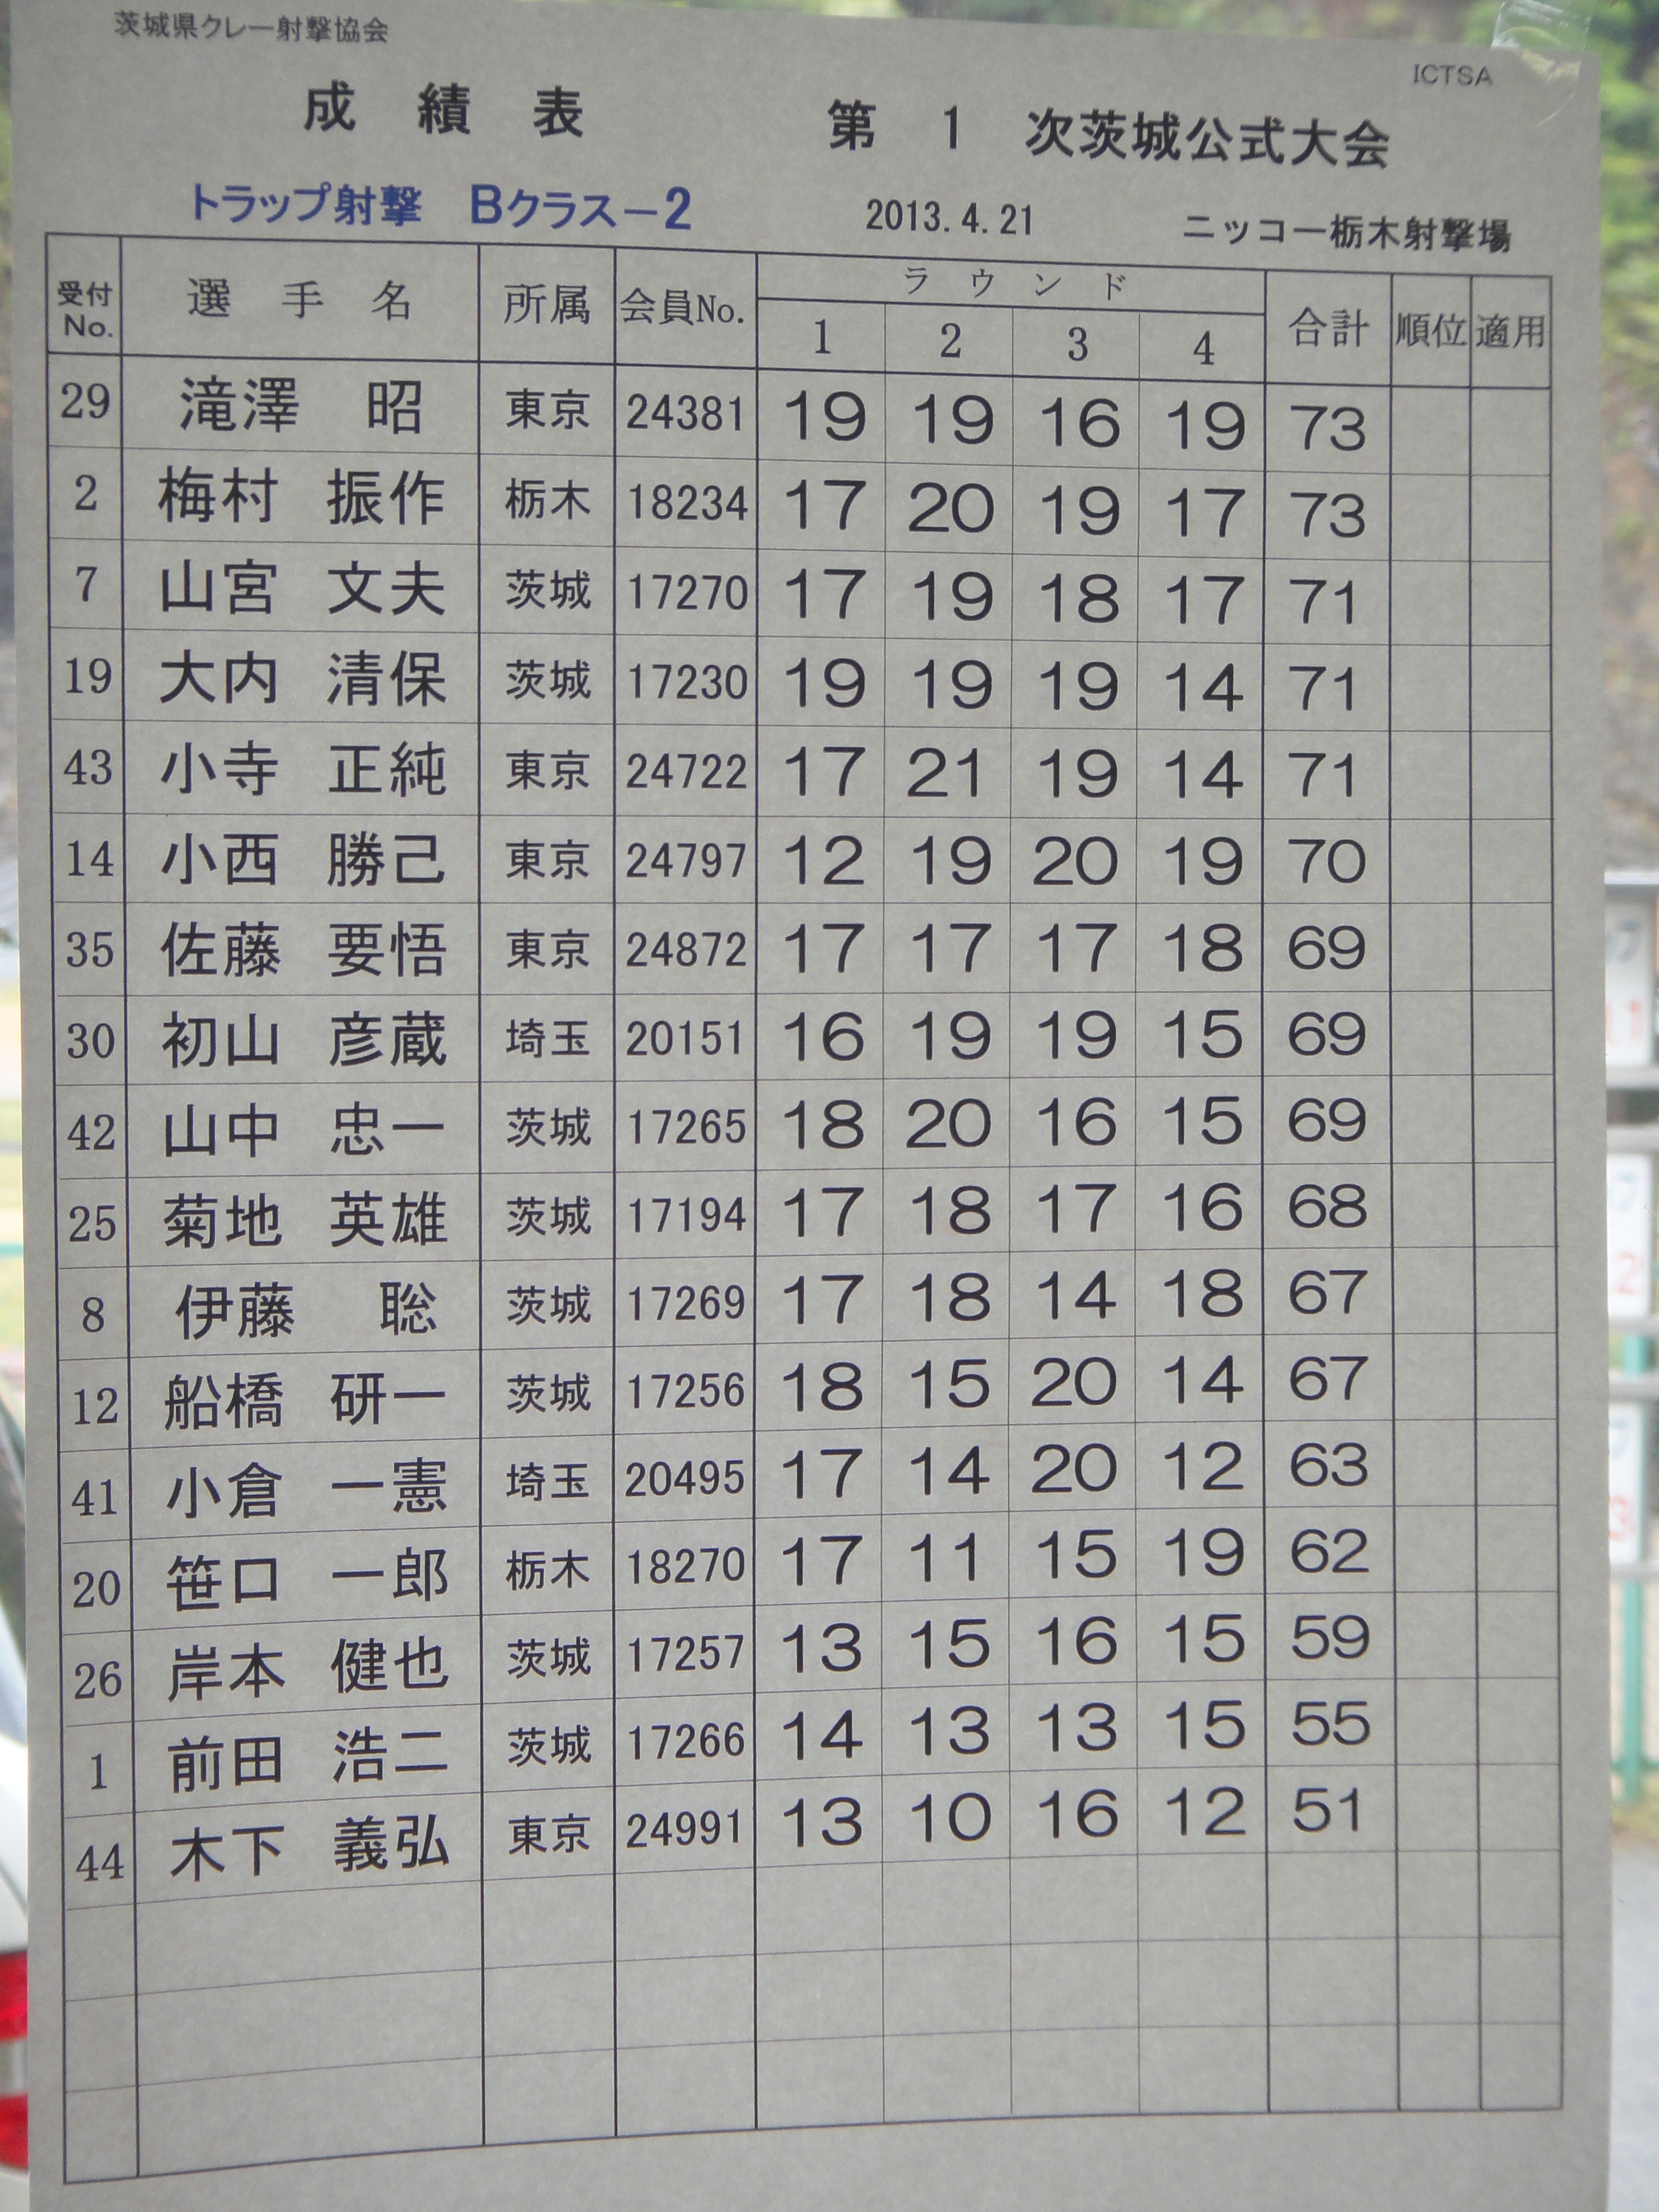 茨城県クレー射撃協会
ICTSA
成績表 第1次茨城公式大会
トラップ射撃 Bクラス－2 2013.4.21 ニッコー栃木射撃場
受付No. 選手名 所属 会員No. ラウンド 合計 順位 適用
1 2 3 4
29 滝澤 昭 東京 24381 19 19 16 19 73
2 梅村 振作 栃木 18234 17 20 19 17 73
7 山宮 文夫 茨城 17270 17 19 18 17 71
19 大内 清保 茨城 17230 19 19 19 14 71
43 小寺 正純 東京 24722 17 21 19 14 71
14 小西 勝己 東京 24797 12 19 20 19 70
35 佐藤 要悟 東京 24872 17 17 17 18 69
30 初山 彦蔵 埼玉 20151 16 19 19 15 69
42 山中 忠一 茨城 17265 18 20 16 15 69
25 菊地 英雄 茨城 17194 17 18 17 16 68
8 伊藤 聡 茨城 17269 17 18 14 18 67
12 船橋 研一 茨城 17256 18 15 20 14 67
41 小倉 一憲 埼玉 20495 17 14 20 12 63
20 笹口 一郎 栃木 18270 17 11 15 19 62
26 岸本 健也 茨城 17257 13 15 16 15 59
1 前田 浩二 茨城 17266 14 13 13 15 55
44 木下 義弘 東京 24991 13 10 16 12 51